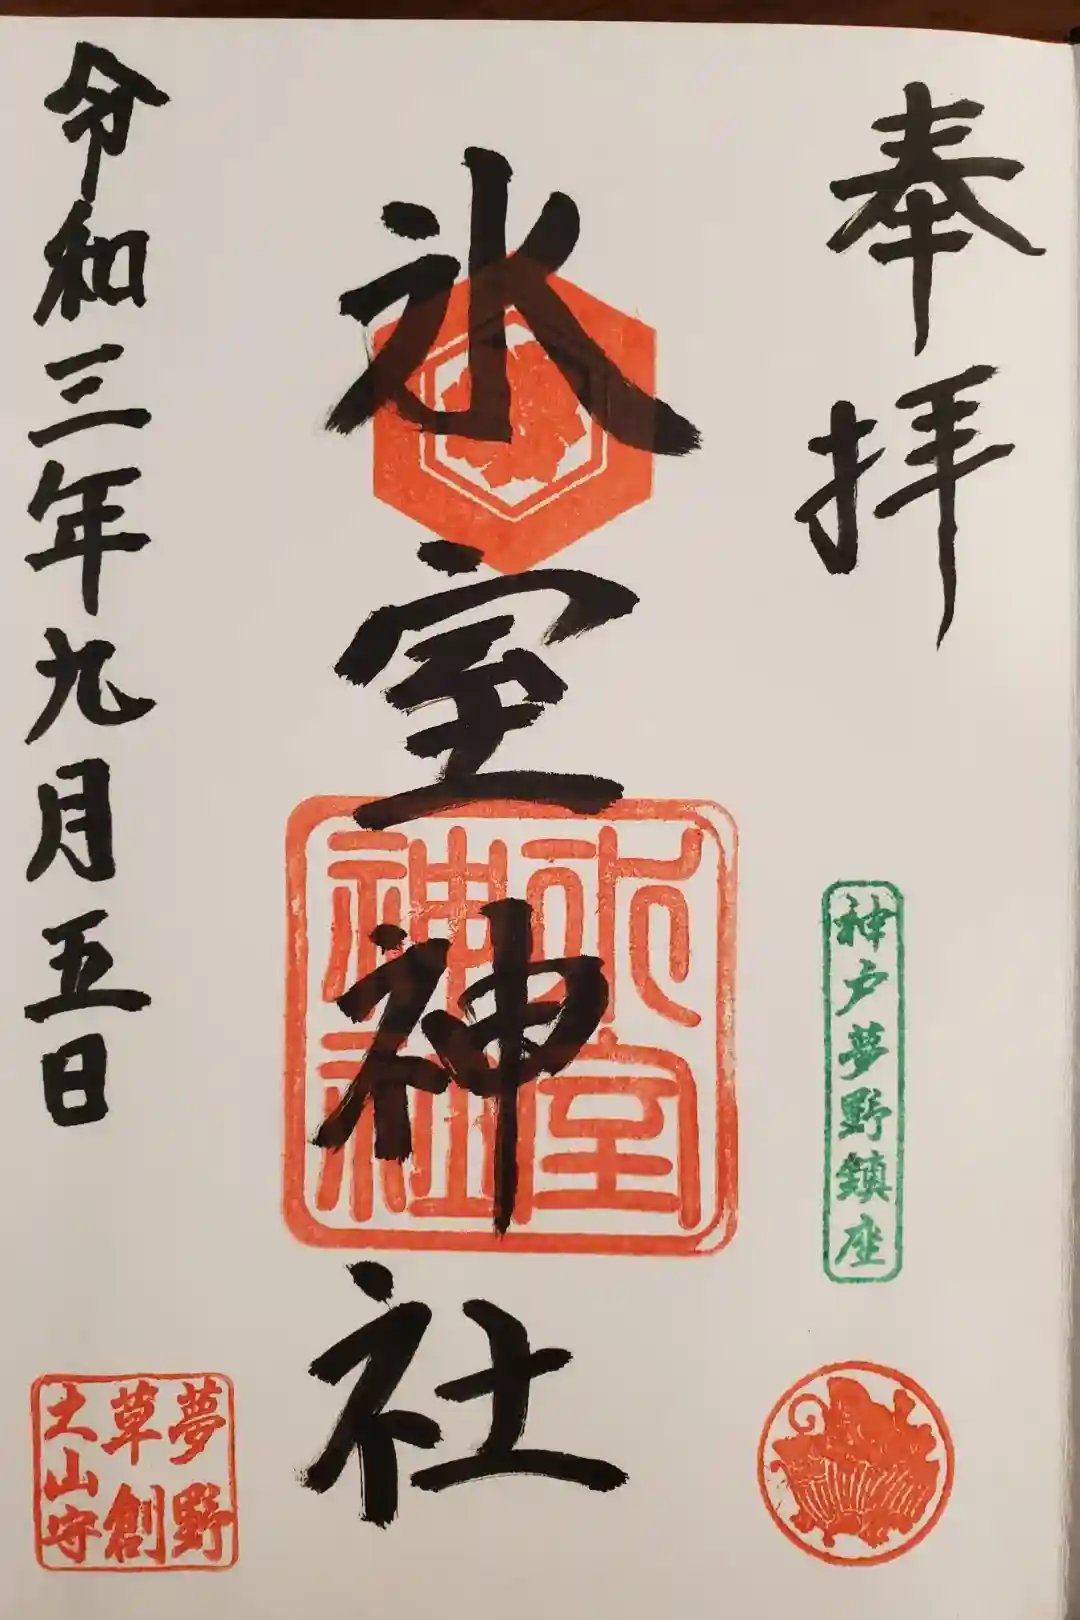 奉拝
神戸夢野鎮座
氷室神社
氷室
神社
令和三年九月五日
夢野
草創
之山守